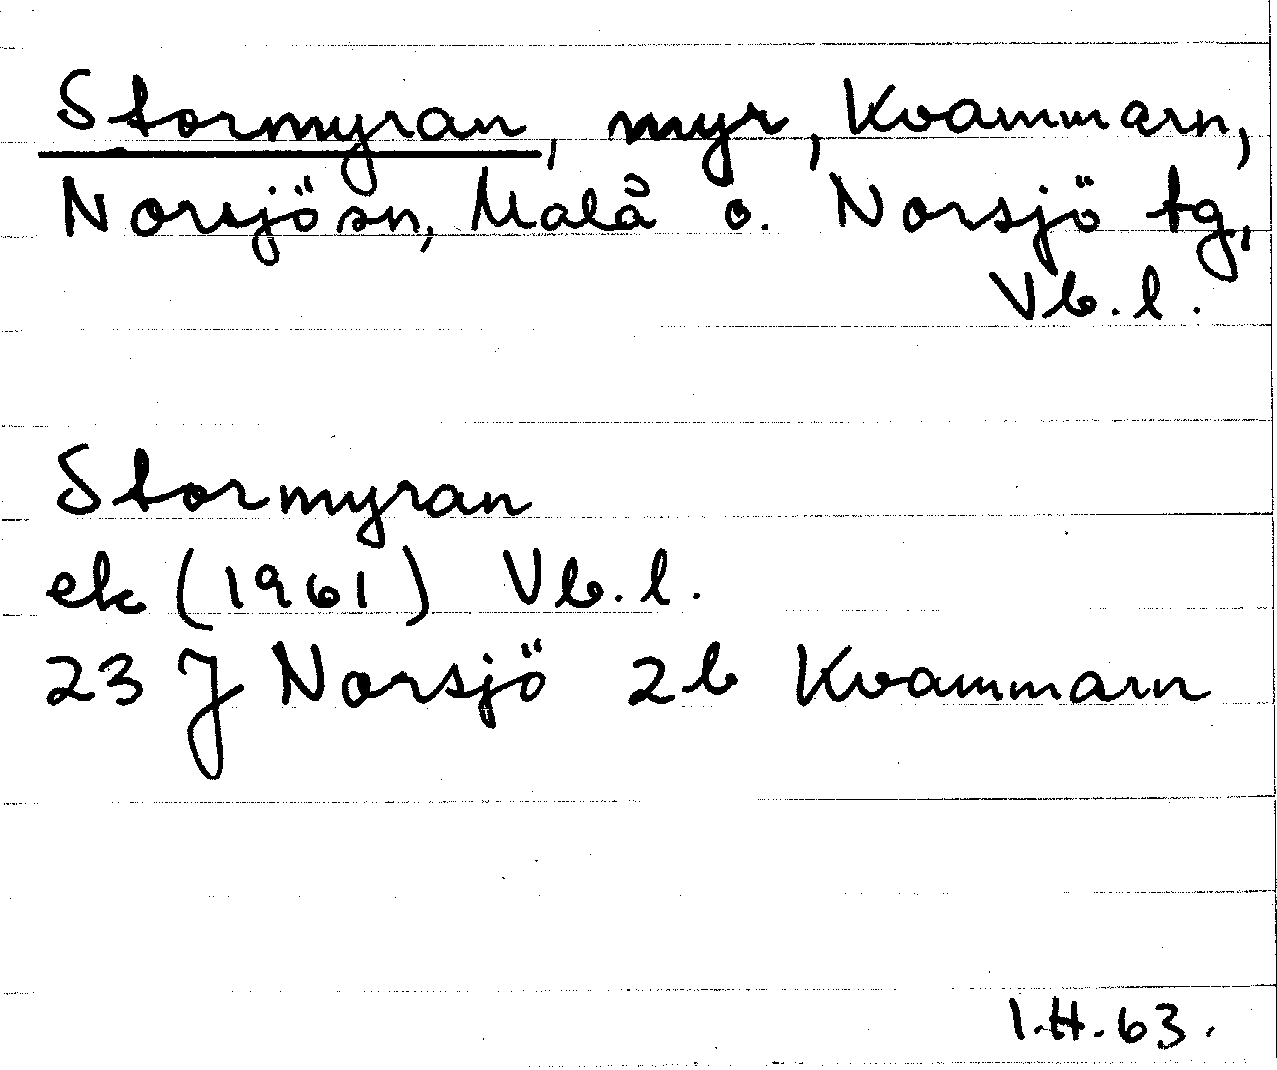 Stormyran, myr, Kvammarn,
Norsjö sn, Malå o. Norsjö tg,
Vb. l.
Stormyran
ek (1961) Vb. l.
23 J Norsjö 2b Kvammarn
I.H. 63.